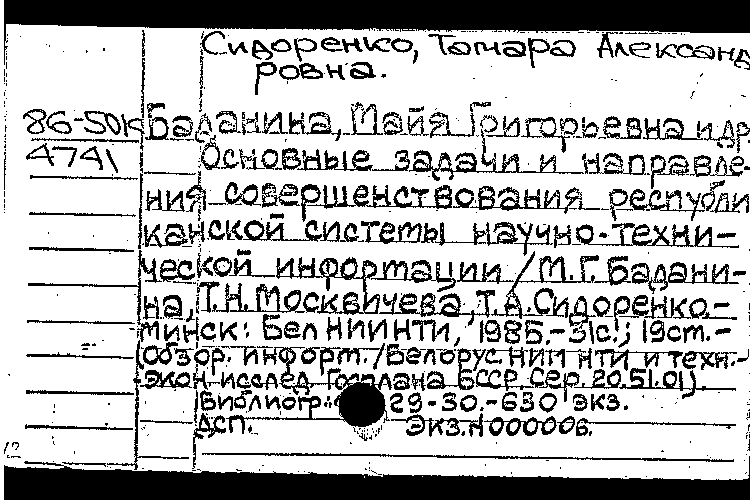 Сидоренко, Тамара Александ
ровна.
86-50к Баданина, Майя Григорьевна и др.
4741 Основные задачи и направле-
ния совершенствования республи
канской системы научно-техни-
ческой информации / М.Г. Бадани-
на, Т.Н. Москвичева, Т.А. Сидоренко.-
Минск: БелНИИНТИ, 1985.- 31с.; 19см.-
(Обзор. информ./Белорус. НИИ НТИ и техн.-
экон. исслед. Госплана БССР. Сер. 20.51.01).
Библиогр.: 29-30.- 630 экз.
ДСП. Экз.N000006.